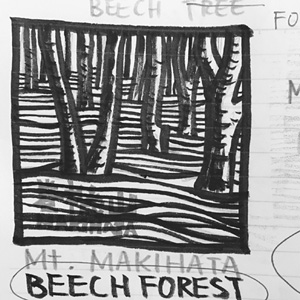 BEECH TREE
FO
M
Mt. MAKIHATA
BEECH FOREST